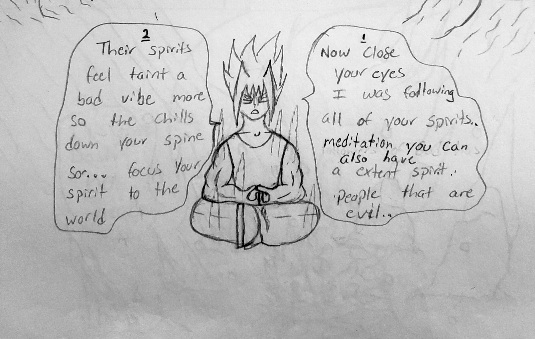 1
Now close
your eyes
I was following
all of your spirits..
meditation you can
also have
a extent spirit..
people that are
evil..
2
Their spirits
feel taint a
bad vibe more
so the chills
down your spine
so... focus your
spirit to the
world